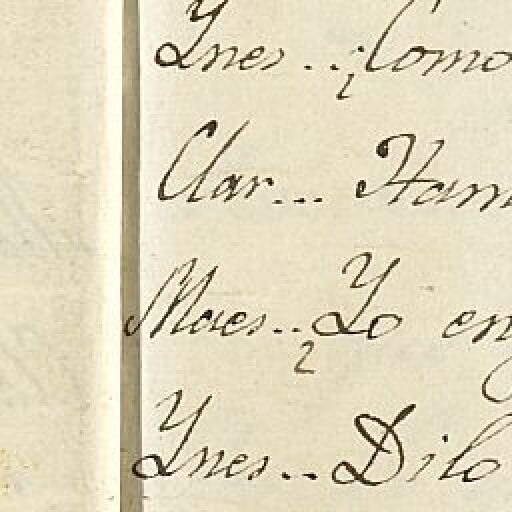 Ynes .. ¿Como
Clar... Ham
Maes.. Yo en
2
Ynes.. Dilo